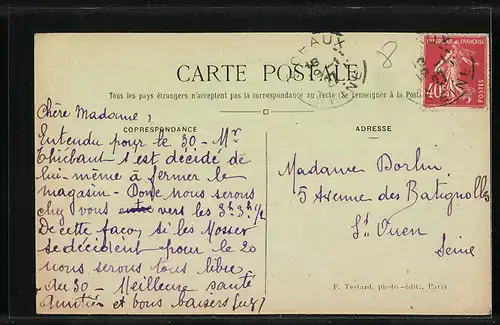 CARTE POSTALE
Tous les pays étrangers n'acceptent pas la correspondance au recto (Se renseigner à la Poste)
CORRESPONDANCE
ADRESSE
Chère Madame,
Entendu pour le 30 - Mr
Thiebaut s'est décidé de
lui-même à fermer le
magasin - Donc nous serons
chez vous entre vers les 3h 3h 1/2
De cette façon si les Mosser
se décident pour le 20
nous serons tous libres
du 30 - Meilleure santé
Amitiés et bons baisers
Madame Dorlin
5 Avenue des Batignolles
St Ouen
Seine
40c
F. Testard, photo-édit., Paris